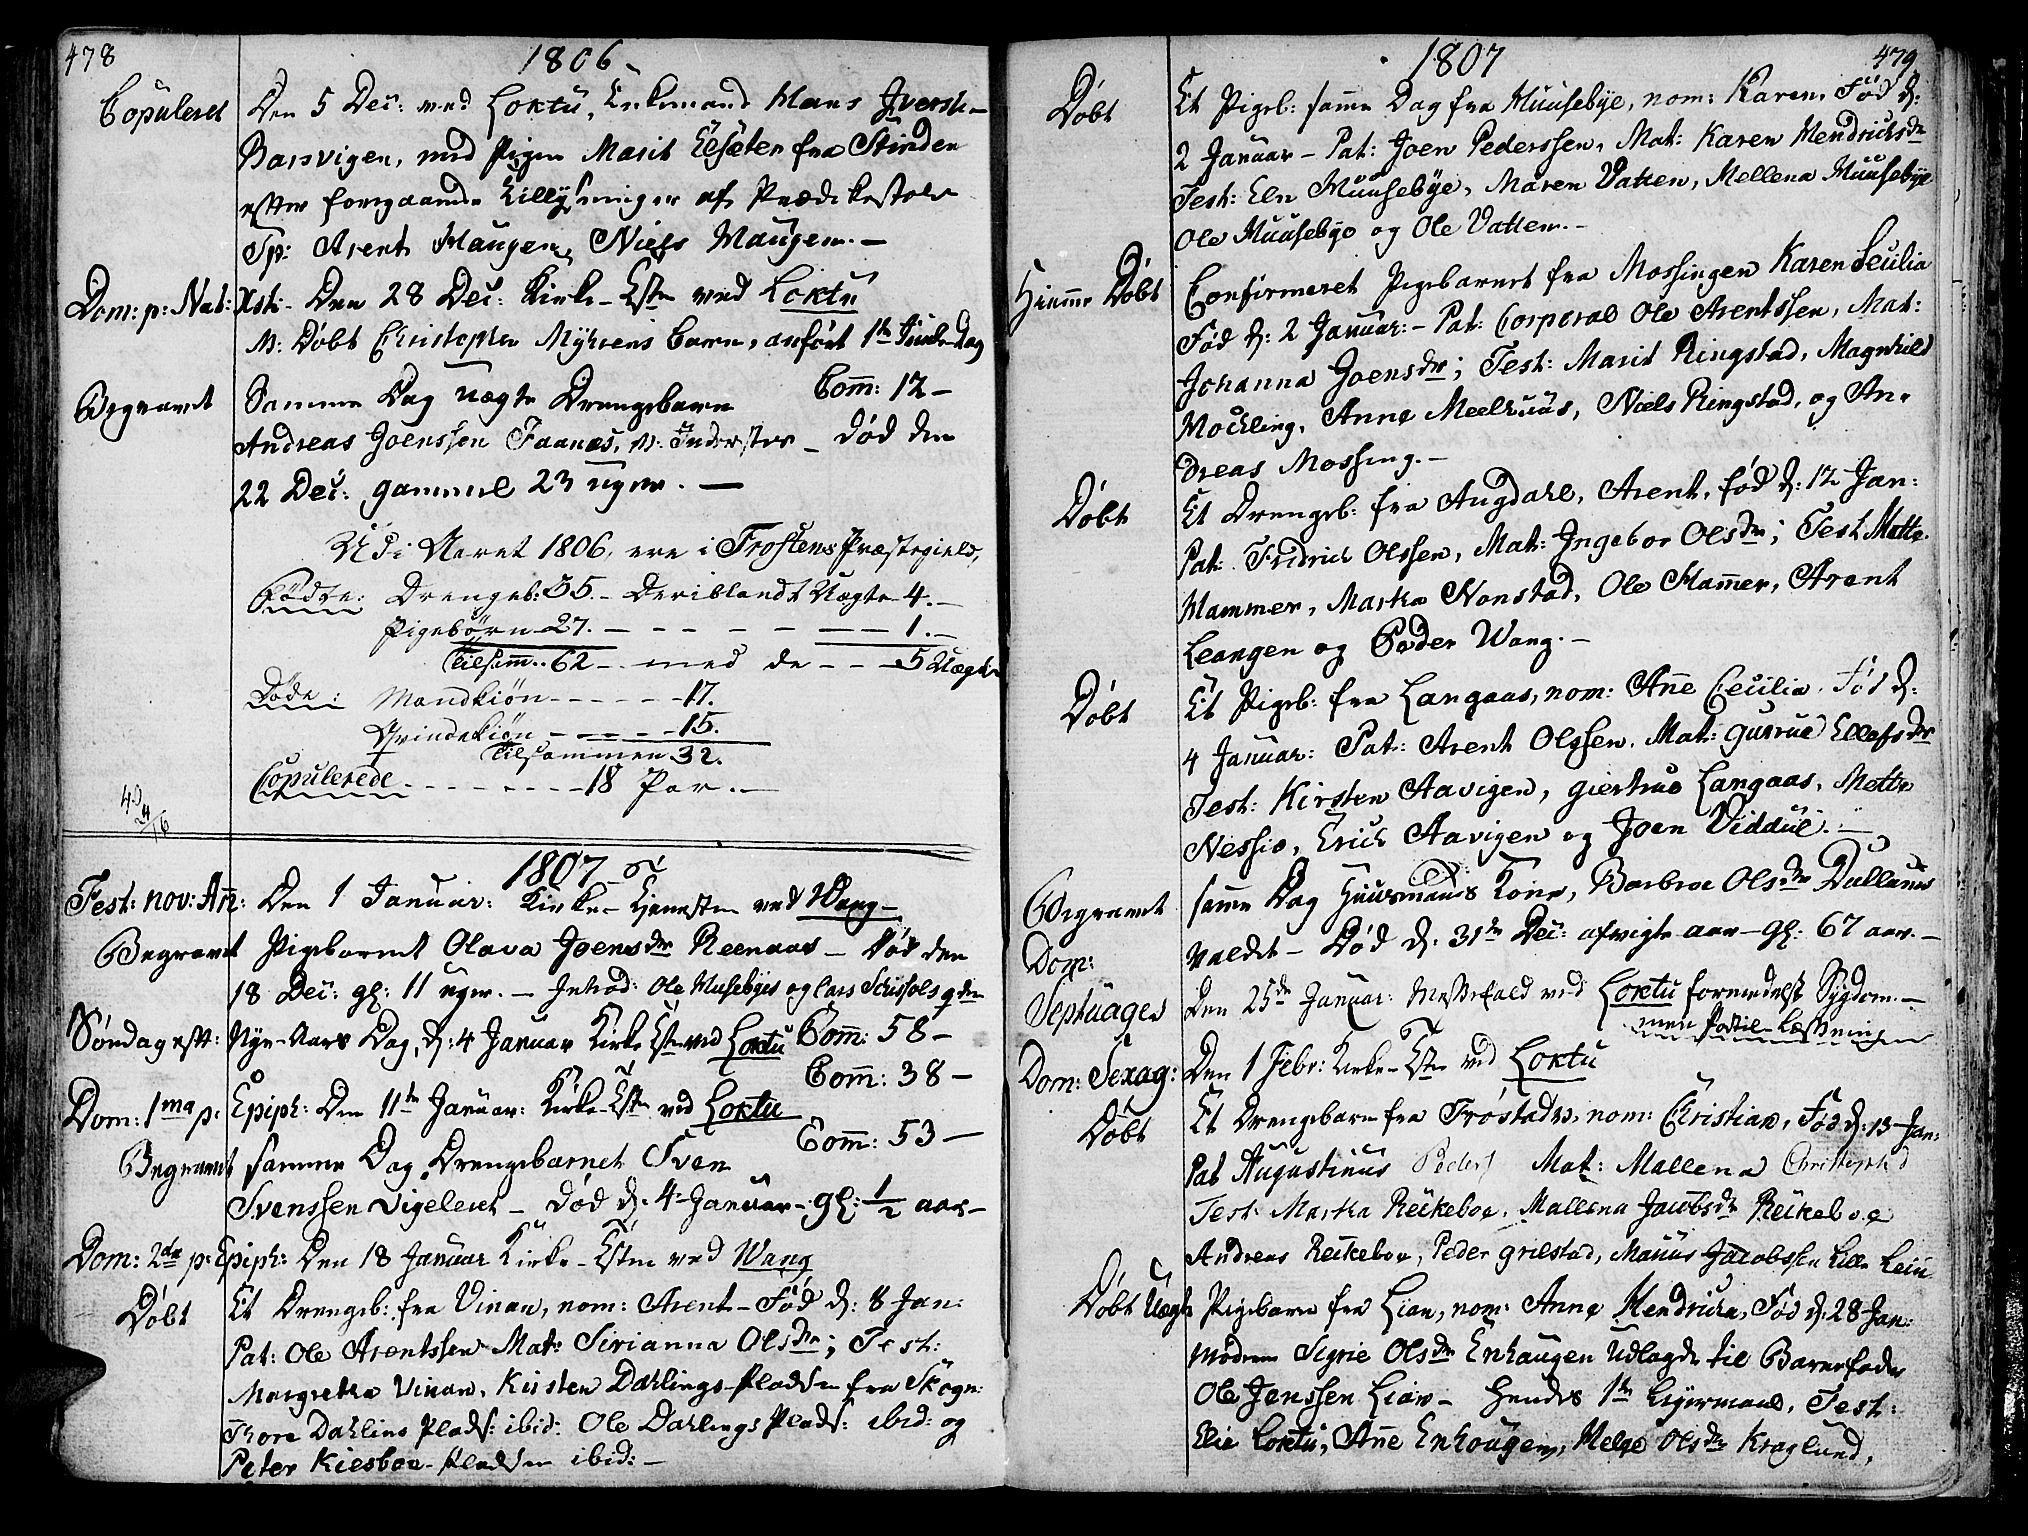 478
1806
Copuleret Den 5 Dec: ved Loktu, Enkemand Hans Iversen
Barsvigen, med Pigen Marit Elseter fra Strinden
efter foregaaende Tillysninger af Prædikestolen
Sp: Arent Haugen, Niels Haugen.—
Dom: p: Nat: Xsti. Den 28 Dec: Kirke-Tstn ved Loktu
N: Døbt Christopher Myhrens Barn, anført 1te Juule Dag
Begravet Samme Dag Uægte Drengebarn Com̄: 12—
Andreas Joenssen Faanæs, N: Inderster— død den
22 Dec: gammel 23 uger.—
Udi Aaret 1806, ere i Frostens Præstegield,
Fødte: Drengeb: 35.— Deriblandt Uægte 4.—
Pigebørn 27.— — — — — — 1.—
Tilsam̄.. 62— med de — — 5 Uægte
Døde: Mandkiøn - - - - - 17.
Qvindekiøn - - - - - 15.
Tilsammen 32.
Copulerede - - - - - - 18 Par.—
1807
Fest: nov: An̄: Den 1 Januar: Kirke-Tjenesten ved Wang—
Begravet Pigebarnet Olava Joensdr Reenaas— Død den
18 Dec: gl: 11 uger.—
Søndag eft: Nye-Aars Dag, d: 4 Januar Kirke Tstn ved Loktu Com̄: 58—
Com̄: 38—
Dom: 1ma p: Epiph: Den 11te Januar: Kirke-Tstn ved Loktu
Com̄: 53—
Begravet samme Dag Drengebarnet Sven
Svenssen Vigeleret— Død d: 4 Januar— gl: 1/2 aar—
Dom: 2da p: Epiph: Den 18 Januar Kirke-Tstn ved Wang
Døbt Et Drengeb: fra Vinan, nom: Arent— Fød d: 8 Jan:
Pat: Ole Arentssen Mat: Sirianna Olsdr; Test:
Margretha Vinan, Kirsten Dahlings-Pladsen fra Skogn:
Thore Dahling Plads: ibid: Ole Dahlings Plads: ibid: og
Peter Kiesboe-Pladsen ibid:—
1807
479
Døbt Et Pigeb: samme Dag fra Huusebye, nom: Karen, Fød d:
2 Januar— Pat: Joen Pederssen, Mat: Karen Hendrichsdr
Test: Eln Huusebye, Maren Vatten, Mellena Huusebye
Ole Huusebye og Ole Vatten.—
Hiemme Døbt Confirmeret Pigebarnet fra Mossingen Karen Secilia
Fød d: 2 Januar:— Pat: Corporal Ole Arentssen, Mat:
Johanna Joensdr; Test: Marit Ringstad, Magnhild
Mochling, Anne Meelhuus, Niels Ringstad, og An-
dreas Mossing.—
Døbt Et Drengeb: fra Augdahl, Arent, fød d: 12 Jan:
Pat: Fridrich Olssen, Mat: Ingebor Olsdr; Test Mette
Hammer, Marta Nonstad, Ole Ham̄er, Arent
Leangen og Peder Wang.—
Døbt Et Pigeb: fra Langaas, nom: An̄e Cecilia. Fød d:
4 Januar: Pat: Arent Olssen. Mat: gurrue Ellefsdr
Test: Kirsten Aavigen, giertrue Langaas, Mette
Nessio, Erich Aavigen og Joen Viddul.—
Begravet samme Dag Huusmands Kone, Barbroe Olsdr Dullum
valdet— Død d: 31te Dec: afvigte aar— gl: 67 aar.—
Dom:
Septuages Den 25de Januar: Messefald ved Loktu formedelst Sygdom.—
men Postil-Læsning
Dom: Sexag: Den 1 Febr: Kirke-Tstn ved Loktu
Døbt Et Drengebarn fra Frøstades, nom: Christian, Fød d: 13 Jan:
Pat Augustinus Peders Mat: Mallena Christophd
Test: Marta Reikeboe, Mallena Jacobsdr Reikeboe
Andreas Reikeboe, Peder grilstad, Mauus Jacobssen Lille Lein
Døbt Uægte Pigebarn fra Lian, nom: Anne Hendricha, Fød d: 28 Jan:
Modren Sigrie Olsdr Enhaugen Udlagde til Barnefader
Ole Jenssen Lian— Hendes 1te Leyermaal, Test:
Elie Loktu, An̄e Enhougen, Helge Olsdr Kraglund,